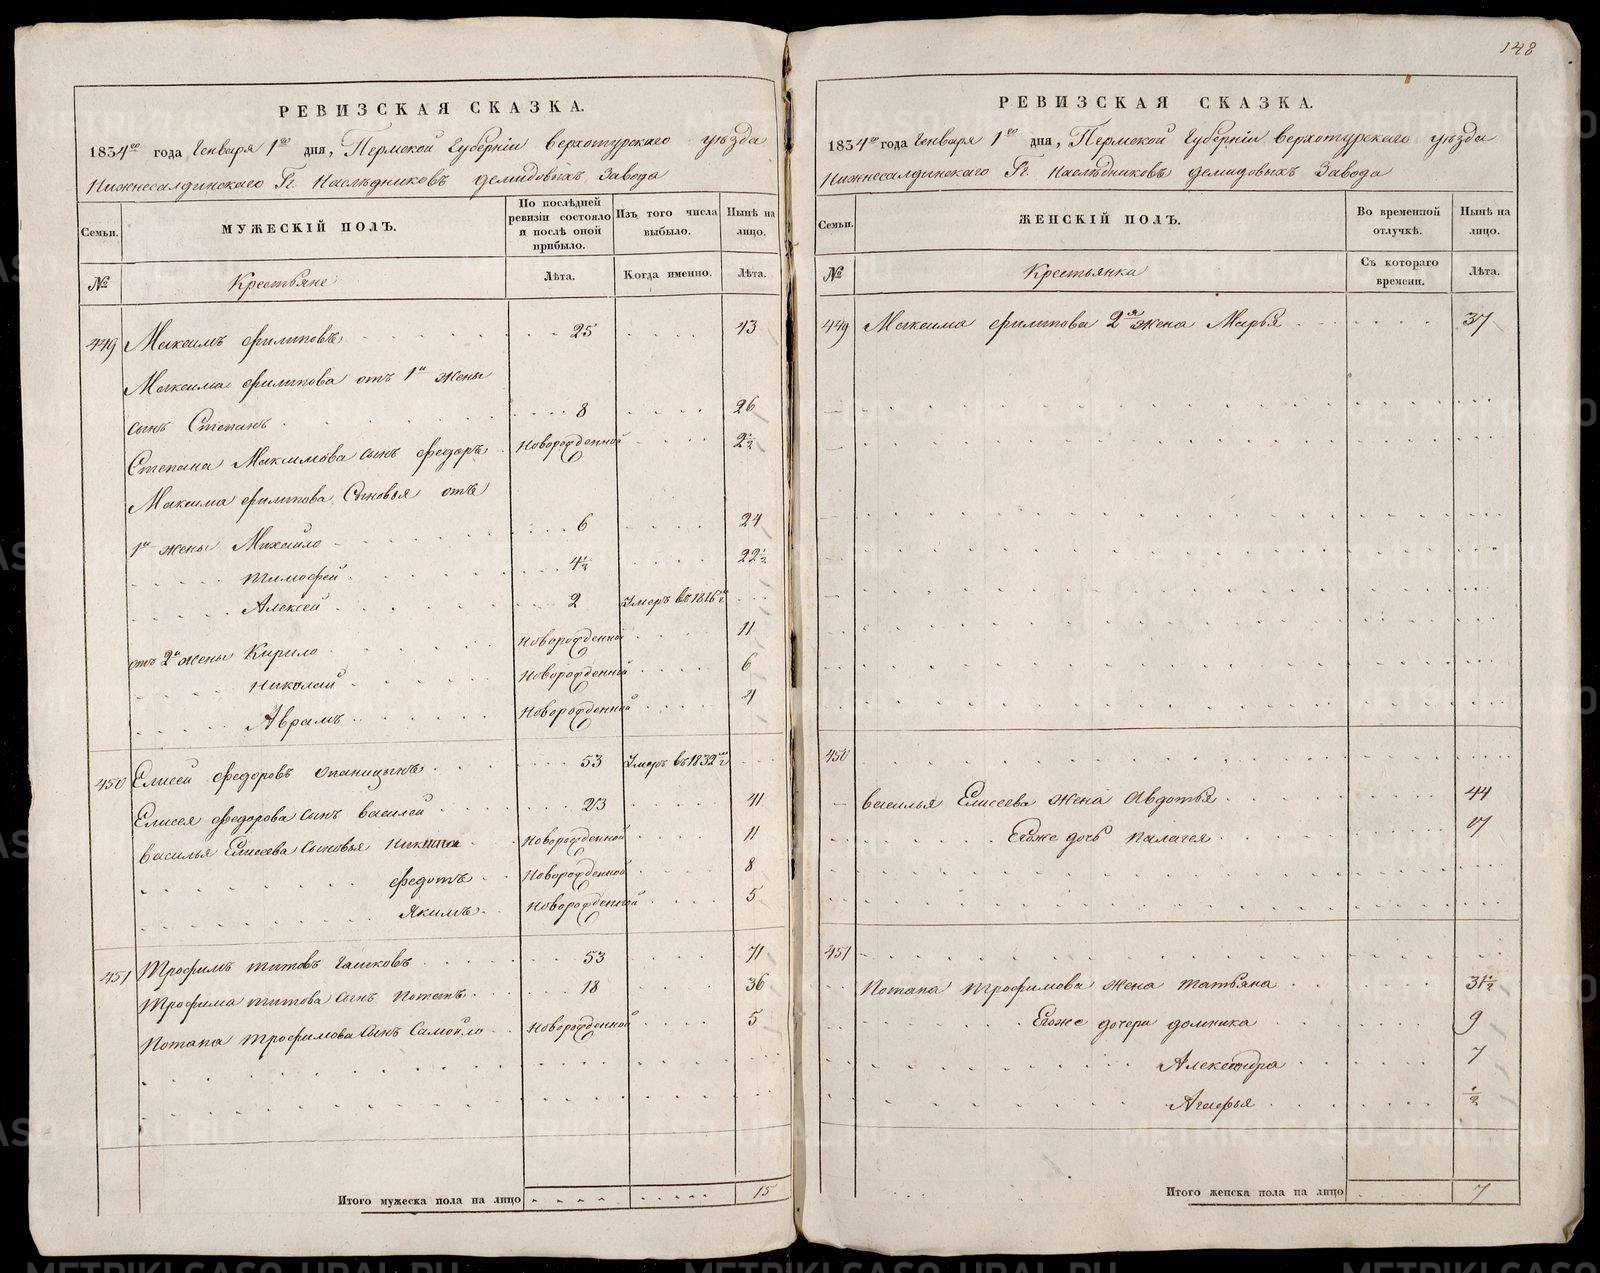 148
РЕВИЗСКАЯ СКАЗКА.
1834го года Генваря 1го дня, Пермской Губерніи Верхотурскаго уѣзда
Нижнесалдинскаго Гг Наслѣдниковъ Демидовыхъ Завода
Семьи. МУЖЕСКІЙ ПОЛЪ. По послѣдней ревизіи состояло и послѣ оной прибыло. Изъ того числа выбыло. Нынѣ на лицо.
№ Крестьяне Лѣта. Когда именно. Лѣта.
449 Максимъ Филиповъ 25 43
Максима Филипова отъ 1й жены
сынъ Степанъ 8 26
Степана Максимова сынъ Федоръ Новорожденной 2½
Максима Филипова Сыновья отъ
1й жены Михайло 6 24
Тимофей 4½ 22½
Алексей 2 Умеръ въ 1816мъ г
отъ 2й жены Кирило Новорожденной 11
Николай Новорожденной 6
Аврамъ Новорожденной 4
450 Елисей Федоровъ Опаницынъ 53 Умеръ въ 1832мъ г
Елисея Федорова сынъ Василей 23 41
Василья Елисеева Сыновья Никита Новорожденной 11
Федотъ Новорожденной 8
Якимъ Новорожденной 5
451 Трофимъ Титовъ Гашковъ 53 71
Трофима Титова сынъ Потапъ 18 36
Потапа Трофимова Сынъ Самойло Новорожденной 5
Итого мужеска пола на лицо 15
РЕВИЗСКАЯ СКАЗКА.
1834го года Генваря 1го дня, Пермской Губерніи Верхотурскаго уѣзда
Нижнесалдинскаго Гг Наслѣдниковъ Демидовыхъ Завода
Семьи. ЖЕНСКІЙ ПОЛЪ. Во временной отлучкѣ. Нынѣ на лицо.
№ Крестьянки Съ котораго времени. Лѣта.
449 Максима Филипова 2я жена Марья 37
450
Василья Елисеева жена Авдотья 44
Егоже дочь Палагея 17
451
Потапа Трофимова жена Татьяна 31½
Егоже дочери Домника 9
Александра 7
Агафья ½
Итого женска пола на лицо 7
METRIKI.GASO-URAL.RU